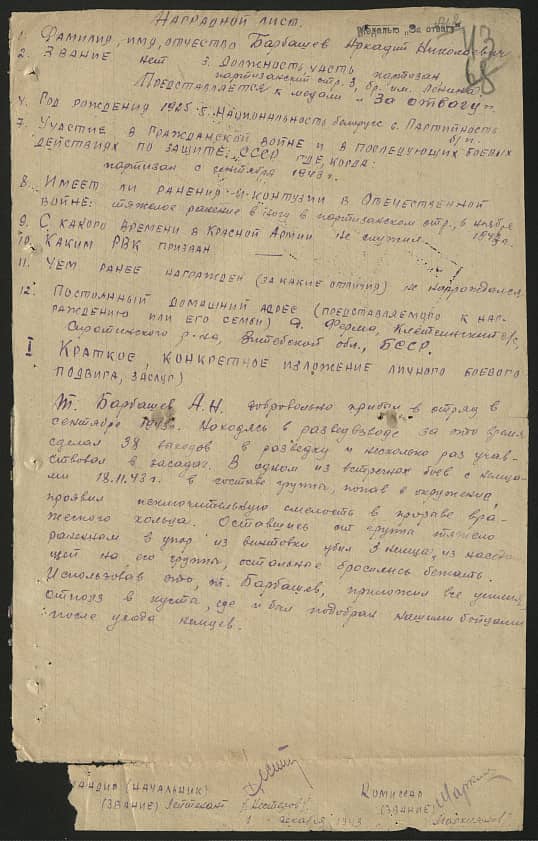 Наградной лист.
Медалью "За отвагу"
43
68
1. Фамилия, имя, отчество Барбашев Аркадий Николаевич
2. Звание нет 3. Должность, часть партизан
партизанский отр. 3, бр. им. Ленина
Представляется к медали "За отвагу"
4. Год рождения 1925 5. Национальность белорус 6. Партийность
б/п.
7. Участие в гражданской войне и в последующих боевых
действиях по защите СССР где, когда:
партизан с сентября 1943 г.
8. Имеет ли ранения и контузии в Отечественной
войне: тяжелое ранение в ногу в партизанском отр., в ноябре
1943 г.
9. С какого времени в Красной Армии не служил
10. Каким РВК призван —
11. Чем ранее награжден (за какие отличия) не награждался
12. Постоянный домашний адрес (представляемого к наг-
раждению или его семьи) д. Ферма,
Сиротинского р-на, Витебской обл., БССР.
I Краткое, конкретное изложение личного боевого
подвига, заслуг)
Т. Барбашев А.Н. добровольно прибыл в отряд в
сентябре 1943 г. Находясь в разведвзводе за это время
сделал 38 выходов в разведку и несколько раз учав-
ствовал в засадах. В одном из встречных боев с немца-
ми 18.11.43 г. в составе группы, попав в окружение,
проявил исключительную смелость в прорыве вра-
жеского кольца. Оставшись от группы тяжело
раненном в упор из винтовки убил 3 немца, из наседа-
щей на его группы, остальные бросились бежать.
Использовав это, т. Барбашев, приложил все усилия
отполз в кусты, где и был подобран нашими бойцами
после ухода немцев.
андир (начальник) Комиссар
(звание) Лейтенант /Нестеров/ (звание)
1 декабря 1943